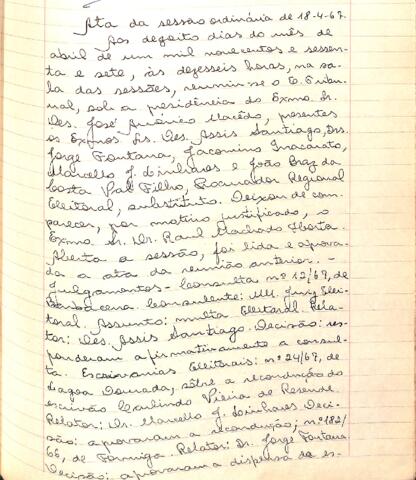 Ata da sessão ordinária de 18-4-67.
Aos dezoito dias do mês de
abril de um mil novecentos e sessen-
ta e sete, às dezesseis horas, na sa-
la das sessões, reuniu-se o E. Tribu-
nal, sob a presidência do Exmo. Sr.
Des. José Américo Macêdo, presentes
os Exmos. Srs. Des. Assis Santiago, Drs.
Jorge Fontana, Jacomino Inacarato,
Marcello J. Linhares e João Braz da
Costa Val Filho, Procurador Regional
Eleitoral, substituto. Deixou de com-
parecer, por motivo justificado, o
Exmo. Sr. Dr. Raul Machado Horta.
Aberta a sessão, foi lida e aprova-
da a ata da reunião anterior. -
Julgamentos - Consulta nº 12/67, de
Barbacena. Consulente: MM. Juiz Elei-
toral. Assunto: multa eleitoral. Rela-
tor: Des. Assis Santiago. Decisão: res-
ponderam afirmativamente a consul-
ta. Escrivanias Eleitorais: nº 24/67, de
Lagoa Dourada, sôbre a recondução do
escrivão Vieira de Resende.
Relator: Dr. Marcello J. Linhares. Deci-
são: aprovaram a recondução; nº 182/
66, de Formiga. Relator: Dr. Jorge Fontana.
Decisão: aprovaram a dispensa do es-